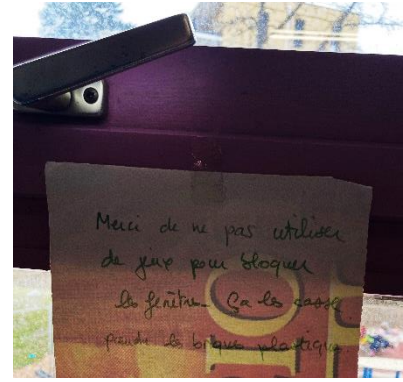 Merci de ne pas utiliser
de jeux pour bloquer
les fenêtres. Ça les casse
prendre les briques plastiques